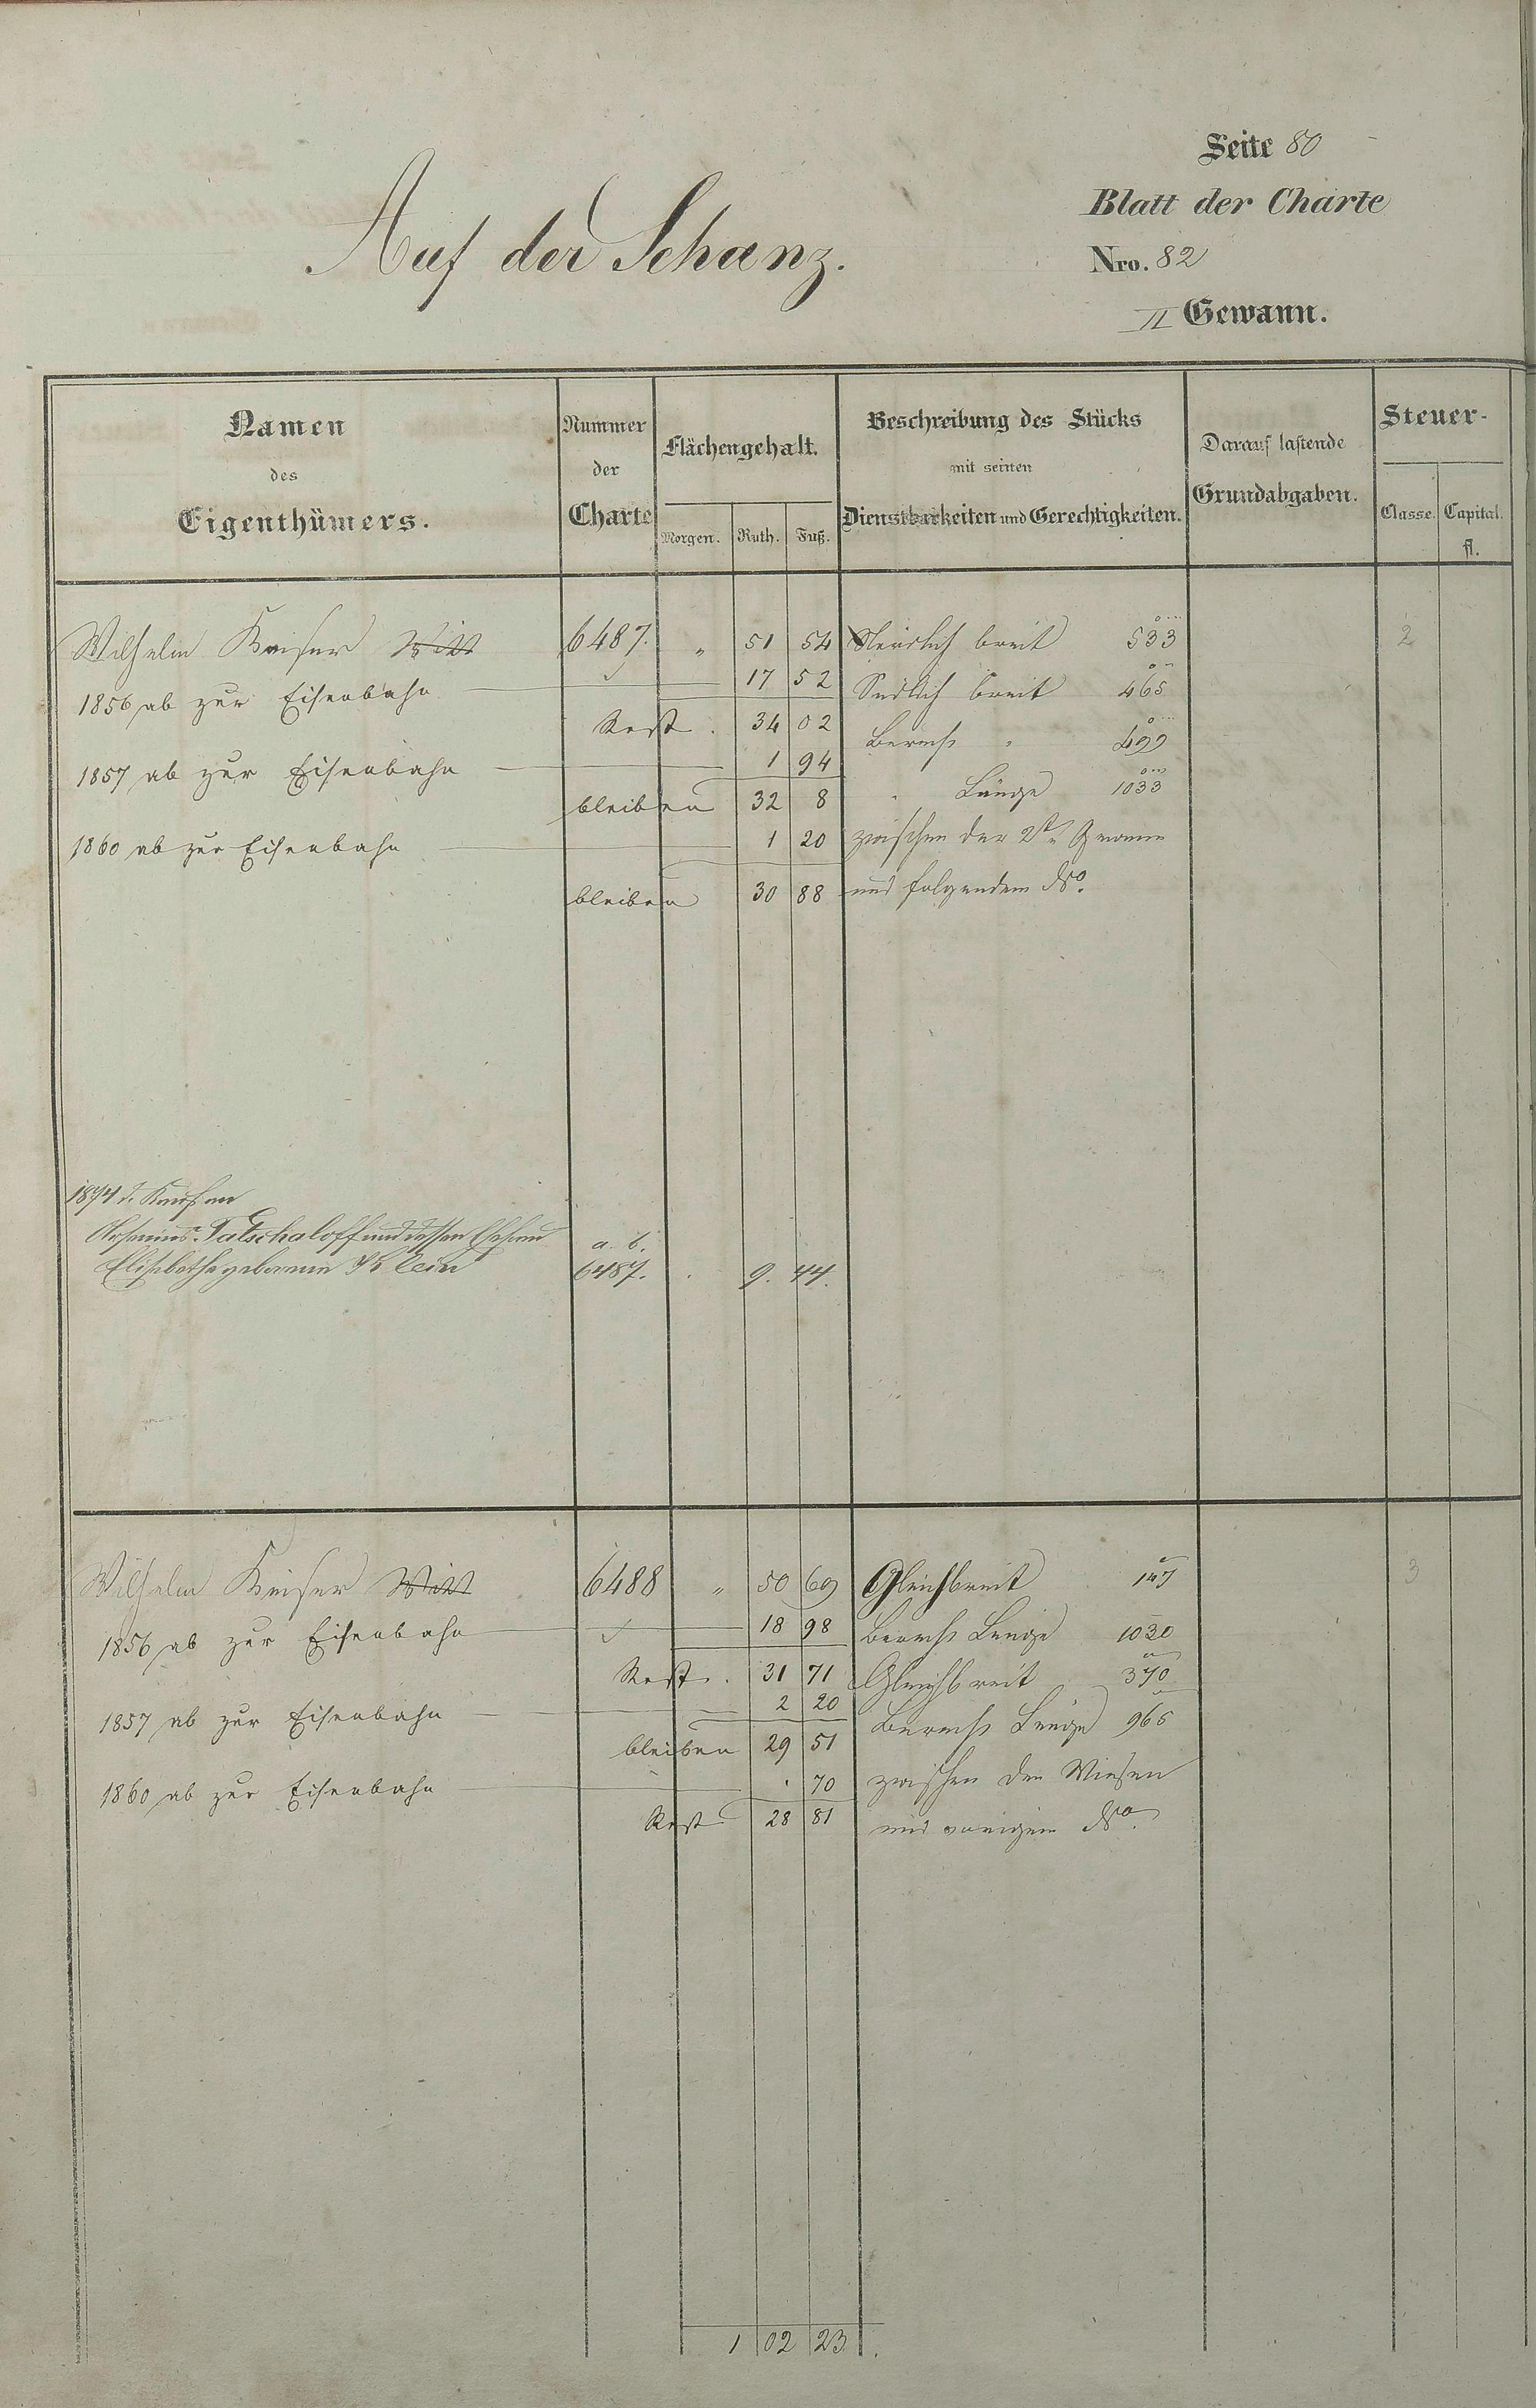 Seite 80
Auf der Schanz.
Blatt der Charte
Nro. 82
II Gewann.
Namen
des
Eigenthümers.
Nummer
der
Charte
Flächengehalt.
Morgen. Ruth. Fuß.
Beschreibung des Stücks
mit seinen
Dienstbarkeiten und Gerechtigkeiten.
Darauf lastende
Grundabgaben.
Steuer-
Classe. Capital.
fl.
Wilhelm Keiser Witt 6487. " 51 54 Nördlich breit 533 2
1856 ab zur Eisenbahn 17 52 Südlich breit 465
Rest . 34 02 Berecht " 499
1857 ab zur Eisenbahn 1 94
bleiben 32 8 " Länge 1033
1860 ab zur Eisenbahn 1 20 zwischen der 2ten Gewann
bleiben 30 88 und folgendem No.
1874 d. Kauf an
Tatschaloff und dessen Ehefrau
Elisabetha geborenen Klein
a. b.
6487. . 9. 44.
Wilhelm Keiser Witt 6488 " 50 69 Gleichbreit 147 3
1856 ab zur Eisenbahn 18 98 Berecht Länge 1030
Rest . 31 71 Gleichbreit 370
1857 ab zur Eisenbahn 2 20
bleiben 29 51 Berecht Länge 965
1860 ab zur Eisenbahn . 70 zwischen den Wiesen
Rest 28 81 und vorigem No.
1 02 23.